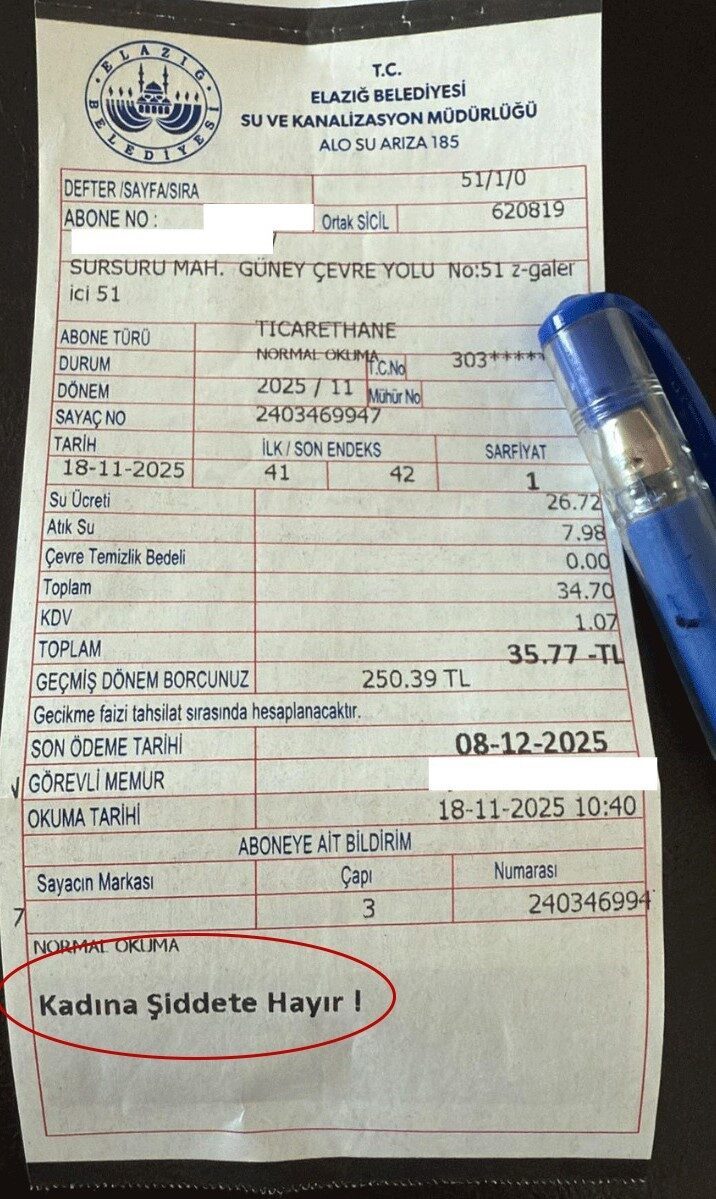 ELAZIĞ BELEDİYESİ
T.C.
ELAZIĞ BELEDİYESİ
SU VE KANALİZASYON MÜDÜRLÜĞÜ
ALO SU ARIZA 185
DEFTER /SAYFA/SIRA 51/1/0
ABONE NO : Ortak SİCİL 620819
SURSURU MAH. GÜNEY ÇEVRE YOLU No:51 z-galer
ici 51
ABONE TÜRÜ TICARETHANE
DURUM NORMAL OKUMA T.C.No 303*****
DÖNEM 2025 / 11 Mühür No
SAYAÇ NO 2403469947
TARİH İLK / SON ENDEKS SARFİYAT
18-11-2025 41 42 1
Su Ücreti 26.72
Atık Su 7.98
Çevre Temizlik Bedeli 0.00
Toplam 34.70
KDV 1.07
TOPLAM 35.77 -TL
GEÇMİŞ DÖNEM BORCUNUZ 250.39 TL
Gecikme faizi tahsilat sırasında hesaplanacaktır.
SON ÖDEME TARİHİ 08-12-2025
GÖREVLİ MEMUR
OKUMA TARİHİ 18-11-2025 10:40
ABONEYE AİT BİLDİRİM
Sayacın Markası Çapı Numarası
7 3 240346994
NORMAL OKUMA
Kadına Şiddete Hayır !